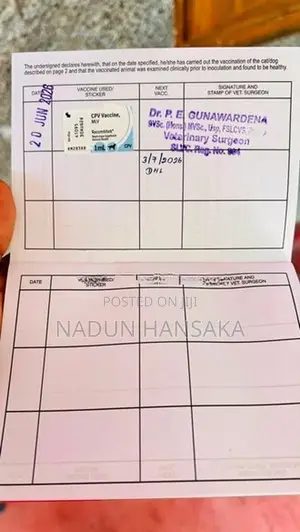 The undersigned declares herewith, that on the date specified, he/she has carried out the vaccination of the cat/dog
described on page 2 and that the vaccinated animal was examined clinically prior to inoculation and found to be healthy.
DATE
VACCINE USED/
STICKER
NEXT
VACC.
SIGNATURE AND
STAMP OF VET. SURGEON
20 JUN 2026
CPV Vaccine,
MLV
1 mL
CPV
3/7/2026
DHL
Dr. P. E. GUNAWARDENA
BVSc. (Hons) MVSc.,
Veterinary Surgeon
SLVC. Reg. No.
DATE
STICKER
VET. SURGEON
POSTED ON JIJI
NADUN HANSAKA